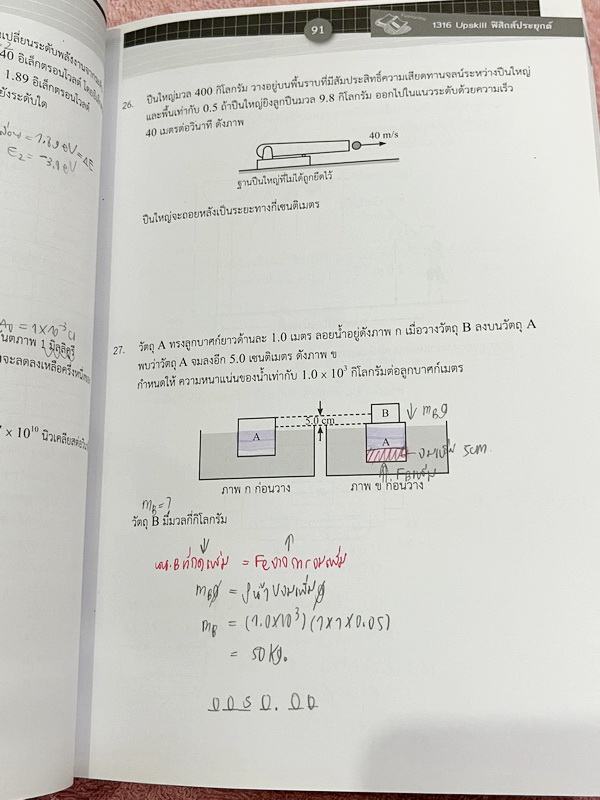 เปลี่ยนระดับพลังงานจาก
40 อิเล็กตรอนโวลต์
1.89 อิเล็กตรอนโวลต์
ยังระดับใด
= 1.89 eV = ΔE
E₂ = -3.4 eV
A₀ = 1×10⁻³ Ci
1 มิลลิคูรี
จะลดลงเหลือครึ่งหนึ่ง
× 10¹⁰ นิวเคลียส
91
1316 Upskill ฟิสิกส์ประยุกต์
26. ปืนใหญ่มวล 400 กิโลกรัม วางอยู่บนพื้นราบที่มีสัมประสิทธิ์ความเสียดทานจลน์ระหว่างปืนใหญ่
และพื้นเท่ากับ 0.5 ถ้าปืนใหญ่ยิงลูกปืนมวล 9.8 กิโลกรัม ออกไปในแนวระดับด้วยความเร็ว
40 เมตรต่อวินาที ดังภาพ
40 m/s
ฐานปืนใหญ่ที่ไม่ได้ถูกยึดไว้
ปืนใหญ่จะถอยหลังเป็นระยะทางกี่เซนติเมตร
27. วัตถุ A ทรงลูกบาศก์ยาวด้านละ 1.0 เมตร ลอยน้ำอยู่ดังภาพ ก เมื่อวางวัตถุ B ลงบนวัตถุ A
พบว่าวัตถุ A จมลงอีก 5.0 เซนติเมตร ดังภาพ ข
กำหนดให้ ความหนาแน่นของน้ำเท่ากับ 1.0 × 10³ กิโลกรัมต่อลูกบาศก์เมตร
A
5.0 cm
B
A
m_B g
จมเพิ่ม 5cm.
F_B เพิ่ม
ภาพ ก ก่อนวาง
ภาพ ข ก่อนวาง
m_B = ?
วัตถุ B มีมวลกี่กิโลกรัม
นน. B ที่กดเพิ่ม = F_B จากการจมเพิ่ม
m_B g = ρน้ำ Vจมเพิ่ม g
m_B = (1.0×10³)(1×1×0.05)
= 50 kg.
0 0 5 0 . 0 0